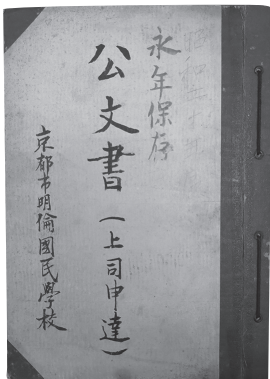 永年保存
公文書（上司申達）
京都市明倫國民學校